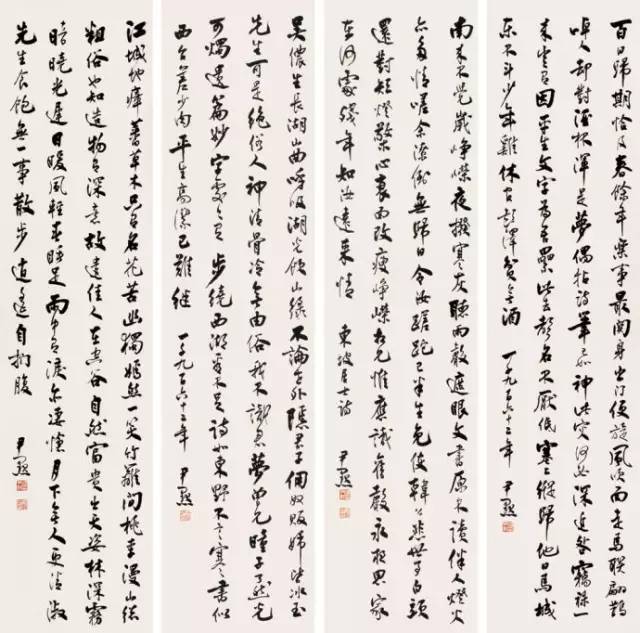 百日歸期恰及春餘年樂事最關身出門便旋風吹面走馬聯翩鵲
啅人卻對酒杯渾是夢偶拈詩筆已如神此災何必深追咎竊祿從
來豈有因平生文字為吾累此去聲名不厭低塞上縱歸他日馬城
東不斗少年雞休官彭澤貧無酒 一千九百六十二年 尹默
南來不覺歲崢嶸夜撥寒灰聽雨聲遮眼文書原不讀伴人燈火
亦多情嗟余潦倒無歸日今汝蹉跎已半生免使韓公悲世事白頭
還對短燈檠心衰面改瘦崢嶸相見惟應識舊聲永夜思家
在何處殘年知汝遠來情 東坡居士詩 尹默
吳儂生長湖山曲呼吸湖光飲山淥不論世外隱君子傭奴販婦皆冰玉
先生可是絕俗人神清骨冷無由俗我不識君夢曾見瞳子了然光
可燭遺篇妙字處處有步繞西湖看不足詩如東野不言寒書似
西台差少肉平生高潔已難繼 一千九百六十二年 尹默
江城地瘴蕃草木只有名花苦幽獨嫣然一笑竹籬間桃李漫山總
粗俗也知造物有深意故遣佳人在空谷自然富貴出天姿林深霧
暗曉光遲日暖風輕春睡足雨中有淚亦淒愴月下無人更清淑
先生食飽無一事散步逍遙自捫腹 尹默